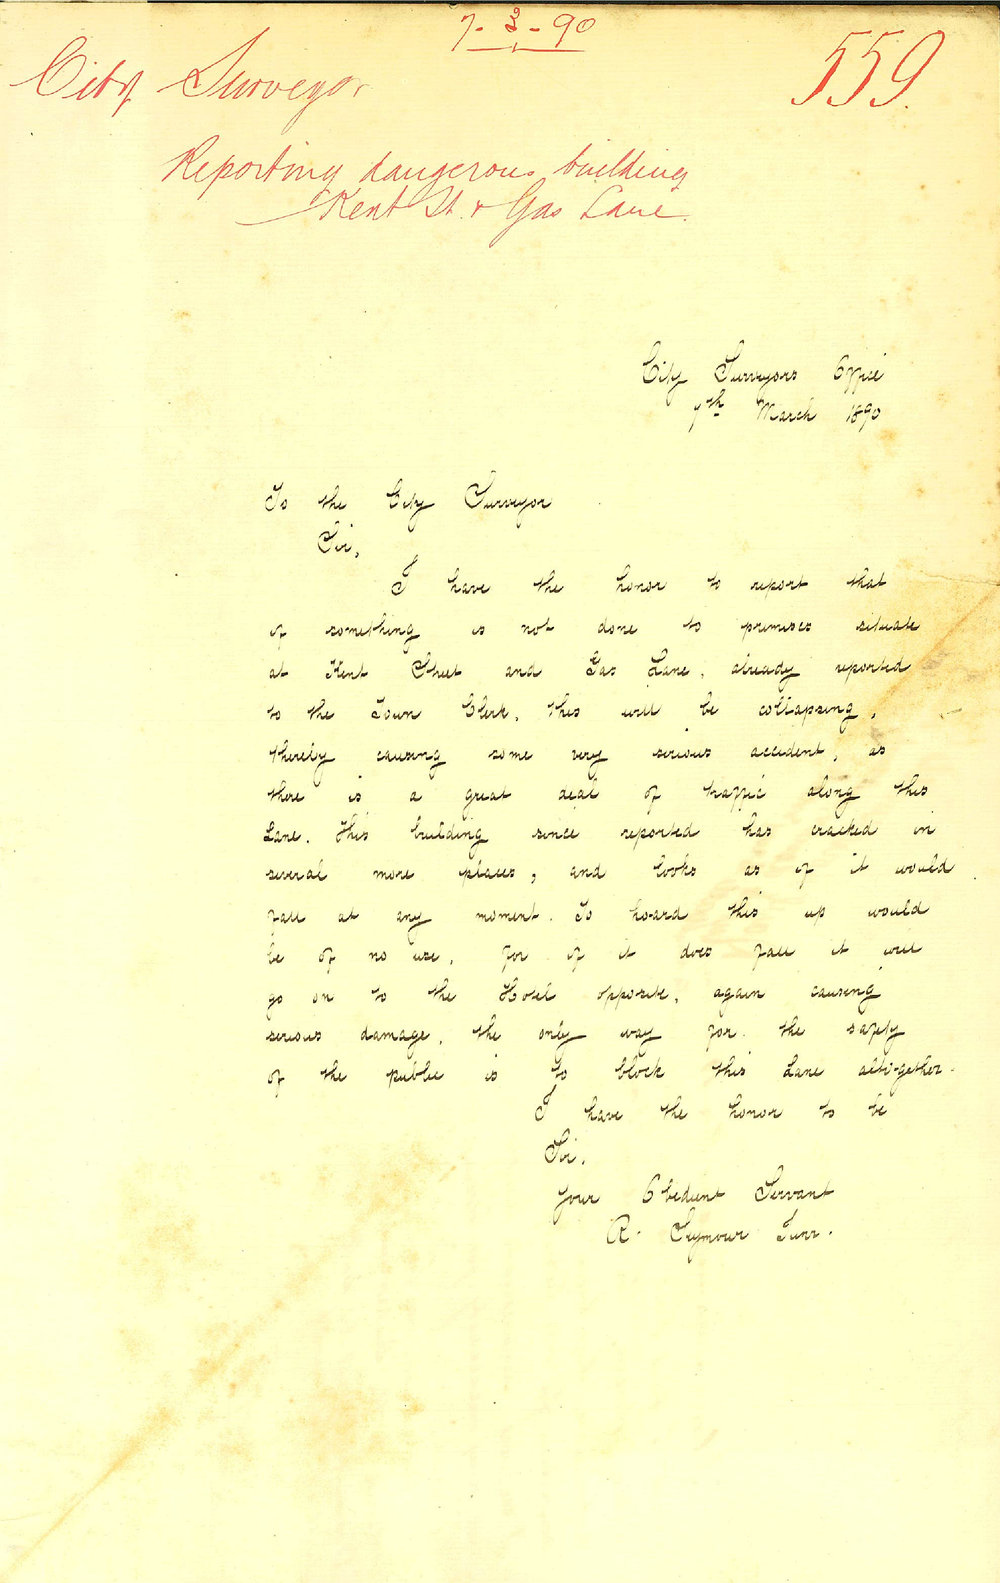 7-3-90
559.
City Surveyor
Reporting dangerous building
Kent St. & Gas Lane.
City Surveyors Office
7th March 1890
To the City Surveyor
Sir,
I have the honor to report that
if something is not done to premises situate
at Kent Street and Gas Lane, already reported
to the Town Clerk, this will be collapsing,
thereby causing some very serious accident, as
there is a great deal of traffic along this
Lane. This building since reported has cracked in
several more places, and looks as if it would
fall at any moment. To hoard this up would
be of no use, for if it does fall it will
go on to the Hotel opposite, again causing
serious damage, the only way for the safty
of the public is to block this Lane alto-gether.
I have the honor to be
Sir,
Your Obedient Servant
R. Seymour